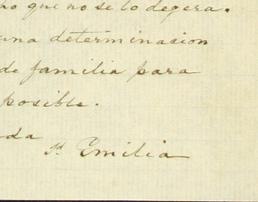 ho que no se lo degera.
una determinasion
de familia para
posible.
da
Emilia